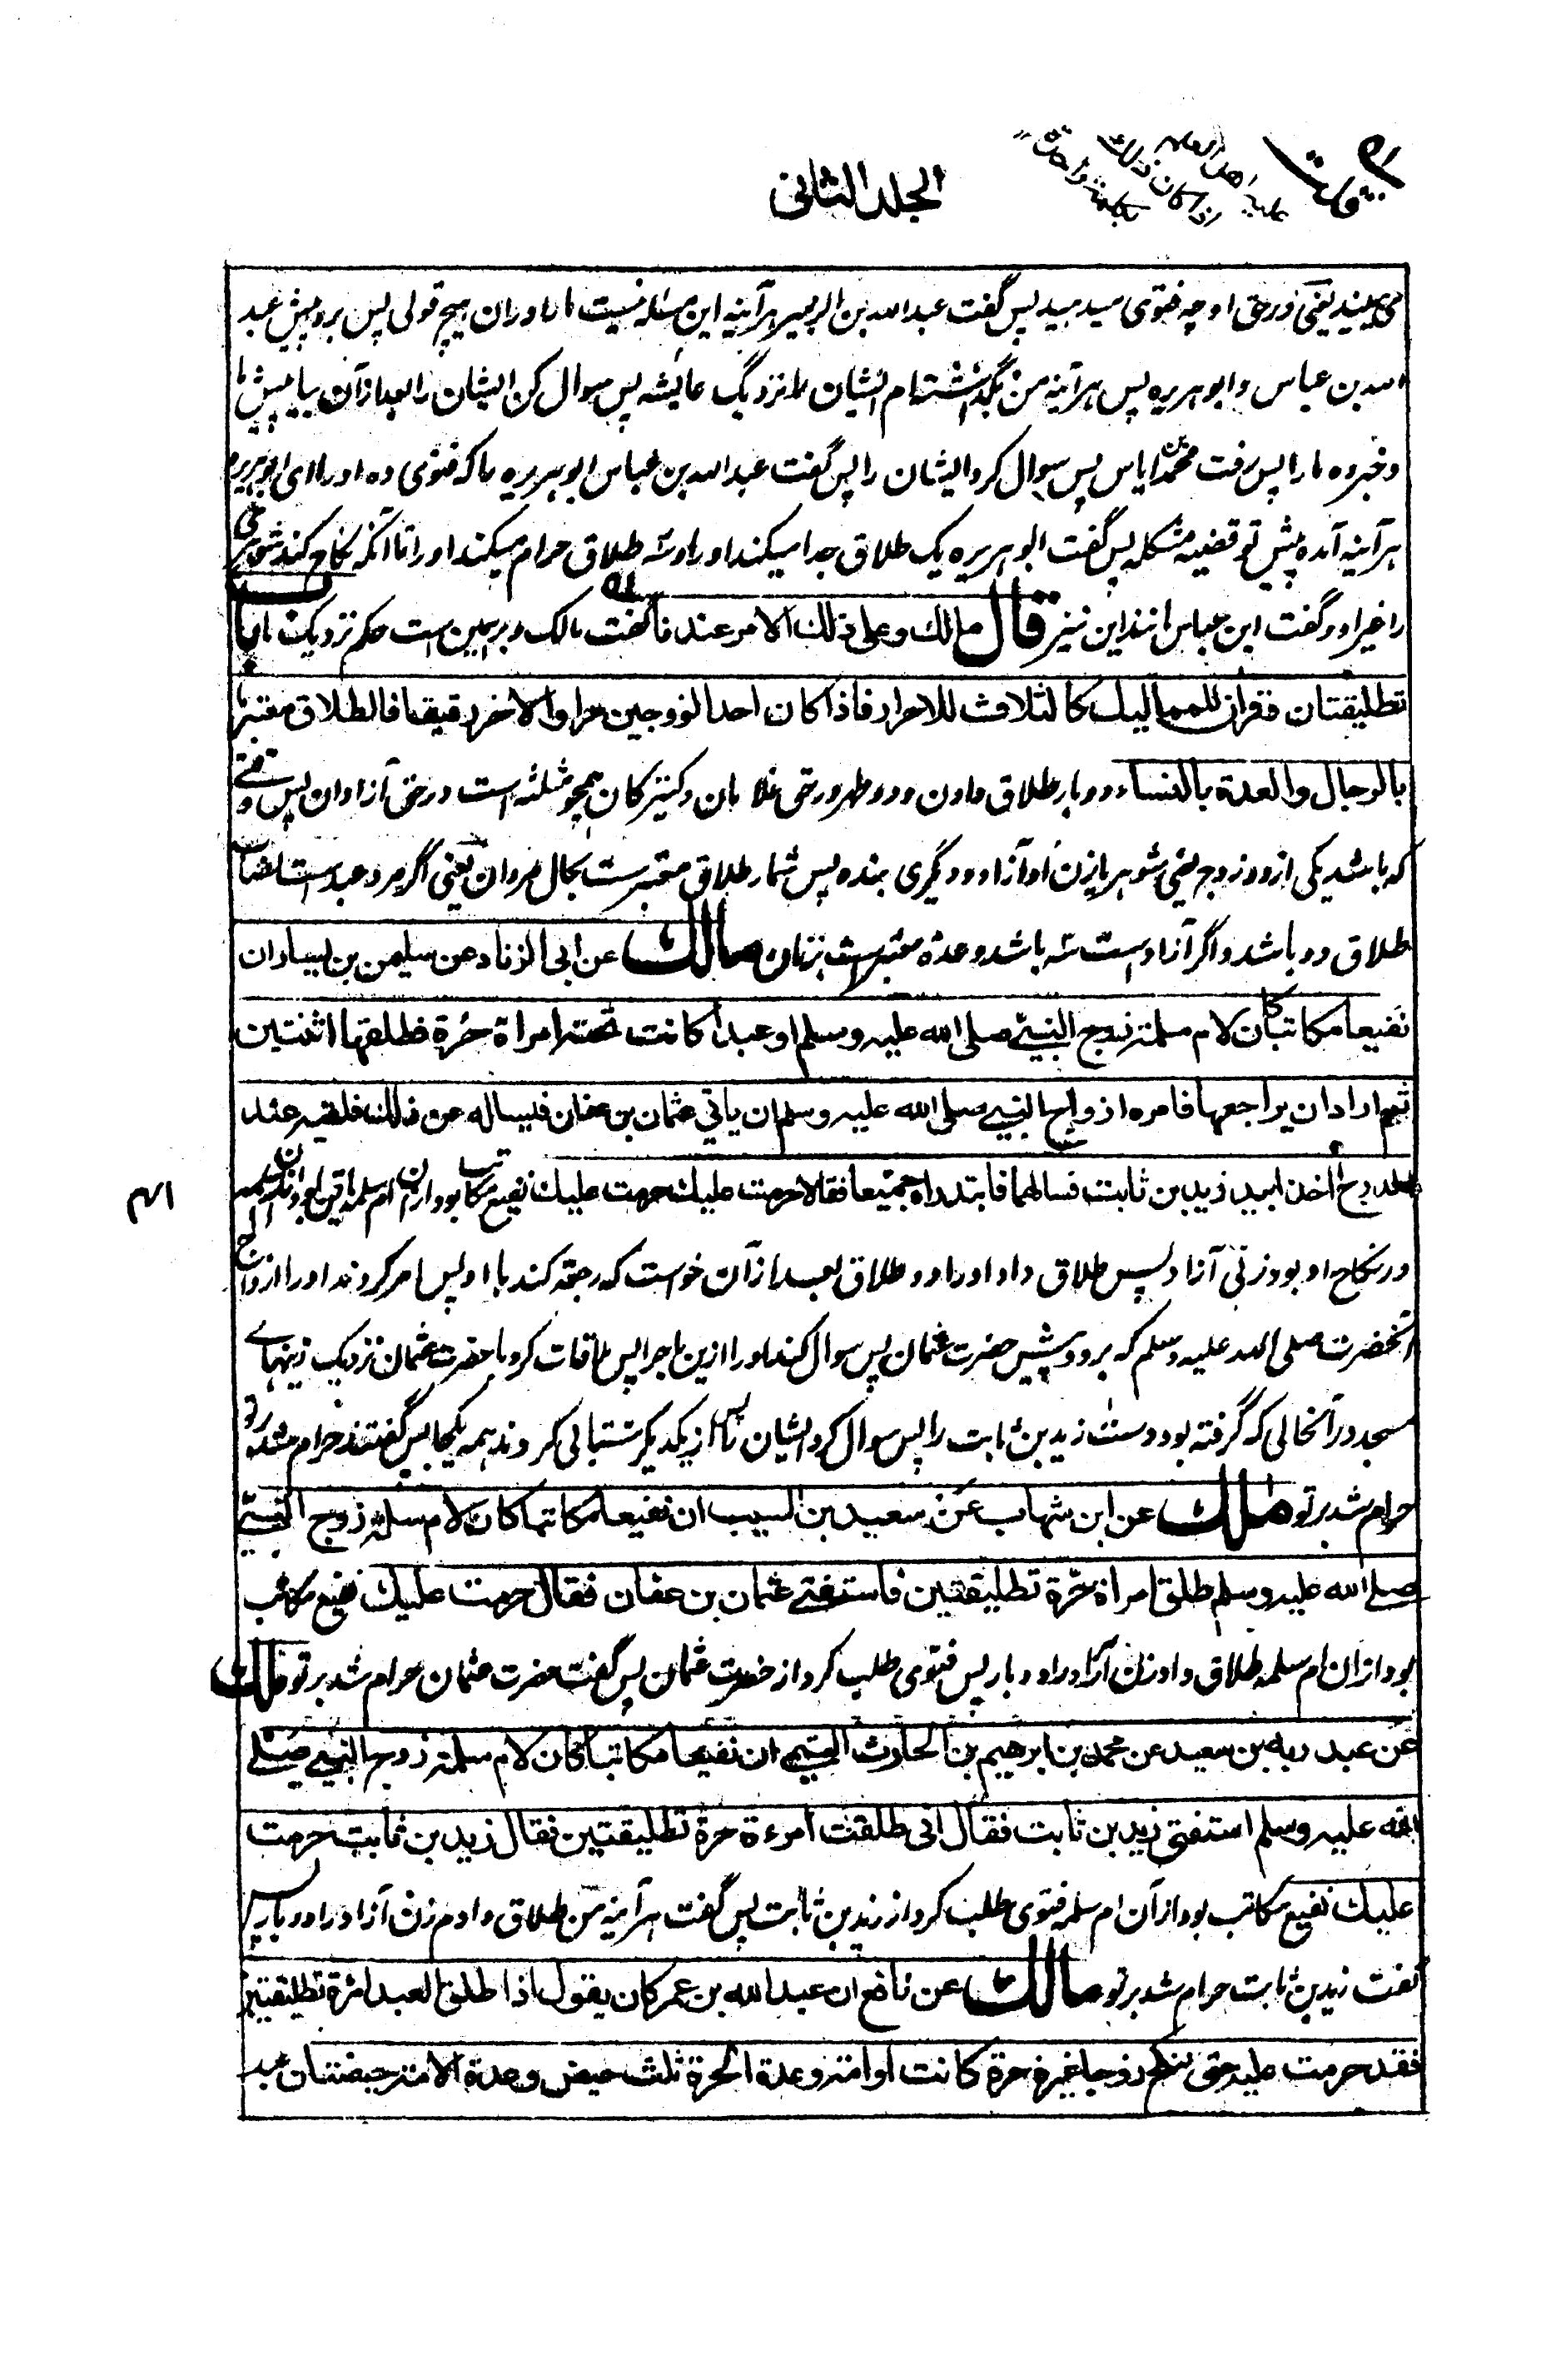 الجلد الثانی
قلت
علیه اهل العلم
اذا کان ذلک
بکلمة واحدة
می بیند یعنی در حق او چه فتوی میدهید پس گفت عبدالله بن الزبیر هرآینه این مسئله نیست ما را دران هیچ قولی پس برو پیش عبد
الله بن عباس و ابوهریره پس هرآینه من بگذاشته ام ایشان را نزدیک عایشه پس سوال کن ایشان را بعد ازان بیا پیش ما
و خبر ده ما را پس رفت محمد بن ایاس پس سوال کرد ایشان را پس گفت عبدالله بن عباس ابوهریره را که فتوی ده او را ای ابوهریره
هرآینه آمده پیش تو قضیه مشکله پس گفت ابوهریره یک طلاق جدا میکند او را و سه طلاق حرام میکند او را تا آنکه نکاح کند شوهری
را غیر او و گفت ابن عباس مانند این نیز قال مالك وعلى ذلك الامر عندنا گفت مالک و برهمین است حکم نزدیک ما باب
تطليقتان وقرأن للمماليك كالثلاث للاحرار فاذا كان احد الزوجين حرا والاخر رقيقا فالطلاق معتبر
بالرجال والعدة بالنساء دو بار طلاق دادن و دو طهر در حق غلامان و کنیزکان همچو ثلثه است در حق آزادان پس وقتی
که باشد یکی از دو زوج یعنی شوهر یا زن او آزاد و دیگری بنده پس شمار طلاق معتبرست بحال مردان یعنی اگر مرد عبد است نصاب
طلاق دو باشد و اگر آزاد است سه باشد و عدة معتبر است بزنان مالك عن ابى الزناد عن سليمن بن يسار ان
نفيعا مكاتبا كان لام سلمة زوج النبي صلى الله عليه وسلم او عبدا كانت تحته امراة حرة فطلقها اثنتين
ثم اراد ان يراجعها فامره ازواج النبي صلى الله عليه وسلم ان ياتي عثمان بن عفان فيساله عن ذلك فلقيه عند
الدرج اخذا بيد زيد بن ثابت فسالهما فابتدراه جميعا فقالا حرمت عليك حرمت عليك نفیع مکاتب بود ازان ام سلمه
در نکاح او بود زنی آزاد پس طلاق داد او را دو طلاق بعد ازان خواست که رجعة کند با او پس امر کردند او را ازواج
آنحضرت صلی الله علیه وسلم که برود پیش حضرت عثمان پس سوال کند او را ازین ماجرا پس ملاقات کرد با حضرت عثمان نزدیک زینهای
مسجد در آنحالی که گرفته بود دست زید بن ثابت را پس سوال کرد ایشان را پس از یکدیگر شتابی کردند همه یکجا پس گفتند حرام شد بر تو
حرام شد بر تو مالك عن ابن شهاب عن سعيد بن المسيب ان نفيعا مكاتبا كان لام سلمة زوج النبي
صلى الله عليه وسلم طلق امراة حرة تطليقتين فاستفتى عثمان بن عفان فقال حرمت عليك نفیع مکاتب
بود ازان ام سلمه طلاق داد زن آزاد را دو بار پس فتوی طلب کرد از حضرت عثمان پس گفت حضرت عثمان حرام شد بر تو مالك
عن عبد ربه بن سعيد عن محمد بن ابرهيم بن الحارث التيمي ان نفيعا مكاتبا كان لام سلمة زوج النبي صلى
الله عليه وسلم استفتى زيد بن ثابت فقال انى طلقت امرءة حرة تطليقتين فقال زيد بن ثابت حرمت
عليك نفیع مکاتب بود ازان ام سلمه فتوی طلب کرد از زید بن ثابت پس گفت هرآینه من طلاق دادم زن آزاد را دو بار پس
گفت زید بن ثابت حرام شد بر تو مالك عن نافع ان عبد الله بن عمر كان يقول اذا طلق العبد امرءة تطليقتين
فقد حرمت عليه حتى تنكح زوجا غيره حرة كانت او امة وعدة الحرة ثلث حيض وعدة الامة حيضتان عبد
۴۱